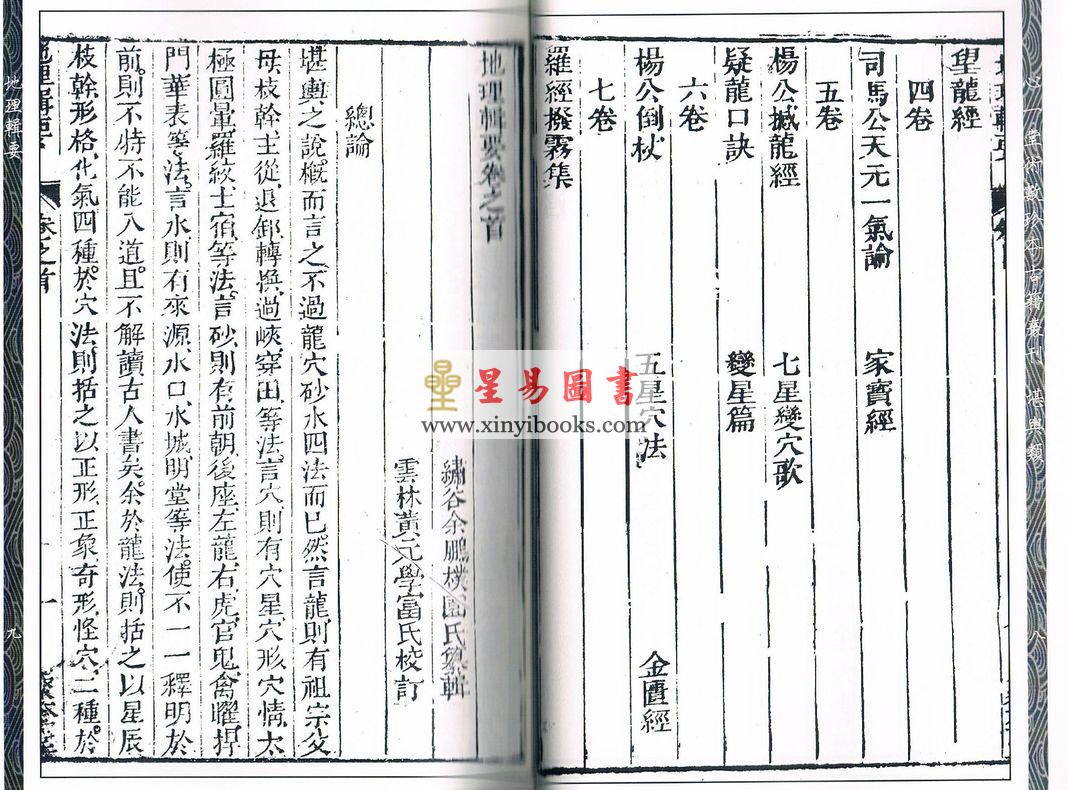 望龍經
四卷
司馬公天元一氣論 家寶經
五卷
楊公撼龍經 七星變穴歌
疑龍口訣 變星篇
六卷
楊公倒杖 五星穴法 金匱經
七卷
羅經撥霧集
八
地理輯要卷之首
繡谷余鵬樸園氏纂輯
雲林黃元學富氏校訂
總論
堪輿之說概而言之不過龍穴砂水四法而已然言龍則有祖宗父
母枝幹主從退卸轉換過峽穿田等法言穴則有穴星穴形穴情太
極圓暈羅紋土宿等法言砂則有前朝後座左龍右虎官鬼禽曜捍
門華表等法言水則有來源水口水城明堂等法使不一一釋明於
前則不特不能入道且不解讀古人書矣余於龍法則括之以星辰
枝幹形格化氣四種於穴法則括之以正形正象奇形怪穴二種於
卷之首
一
地理輯要
九
心一堂術數珍本古籍叢刊 堪輿類
星易圖書
www.xinyibooks.com